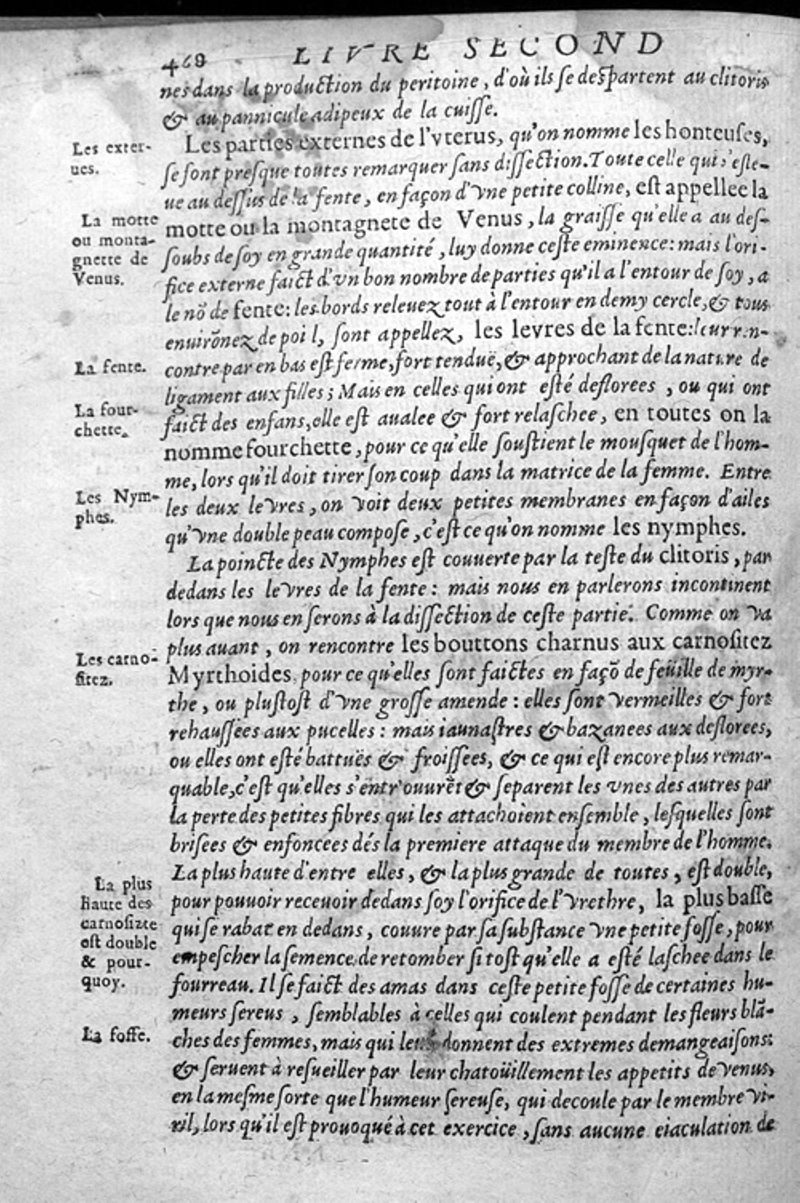 468 LIVRE SECOND
nes dans la production du peritoine, d'où ils se despartent au clitoris
& au pannicule adipeux de la cuisse.
Les exter-
nes.
Les parties externes de l'vterus, qu'on nomme les honteuses,
se sont presque toutes remarquer sans dissection. Toute celle qui s'esle-
ue au dessus de la fente, en façon d'vne petite colline, est appellee la
La motte
ou monta-
gnette de
Venus.
motte ou la montagnete de Venus, la graisse qu'elle a au des-
soubs de soy en grande quantité, luy donne ceste eminence: mais l'ori-
fice externe faict d'vn bon nombre de parties qu'il a l'entour de soy, a
le nõ de fente: les bords releuez tout à l'entour en demy cercle, & tous
enuirõnez de poil, sont appellez, les levres de la fente: leur ren-
La fente.
contre par en bas est ferme, fort tenduë, & approchant de la nature de
ligament aux filles; Mais en celles qui ont esté deflorees, ou qui ont
La four-
chette.
faict des enfans, elle est aualee & fort relaschee, en toutes on la
nomme fourchette, pour ce qu'elle soustient le mousquet de l'hom-
me, lors qu'il doit tirer son coup dans la matrice de la femme. Entre
Les Nym-
phes.
les deux levres, on voit deux petites membranes en façon d'ailes
qu'vne double peau compose, c'est ce qu'on nomme les nymphes.
La poincte des Nymphes est couuerte par la teste du clitoris, par
dedans les levres de la fente: mais nous en parlerons incontinent
lors que nous en serons à la dissection de ceste partie. Comme on va
plus auant, on rencontre les bouttons charnus aux carnositez
Les carno-
sitez.
Myrthoides, pour ce qu'elles sont faictes en façõ de feüille de myr-
the, ou plustost d'vne grosse amende: elles sont vermeilles & fort
rehaussées aux pucelles: mais iaunastres & bazanees aux deflorees,
ou elles ont esté battuës & froissees, & ce qui est encore plus remar-
quable, c'est qu'elles s'entr'ouurẽt & separent les vnes des autres par
la perte des petites fibres qui les attachoient ensemble, lesquelles sont
brisees & enfoncees dés la premiere attaque du membre de l'homme.
La plus
haute des
carnositez
est double
& pour-
quoy.
La plus haute d'entre elles, & la plus grande de toutes, est double,
pour pouuoir receuoir dedans soy l'orifice de l'vrethre, la plus basse
qui se rabat en dedans, couure par sa substance vne petite fosse, pour
empescher la semence de retomber si tost qu'elle a esté laschee dans le
fourreau. Il se faict des amas dans ceste petite fosse de certaines hu-
meurs sereus, semblables à celles qui coulent pendant les fleurs blã-
La fosse.
ches des femmes, mais qui leur donnent des extremes demangeaisons:
& seruent à resueiller par leur chatoüillement les appetits de venus,
en la mesme sorte que l'humeur sereuse, qui decoule par le membre vi-
ril, lors qu'il est prouoqué à cet exercice, sans aucune eiaculation de